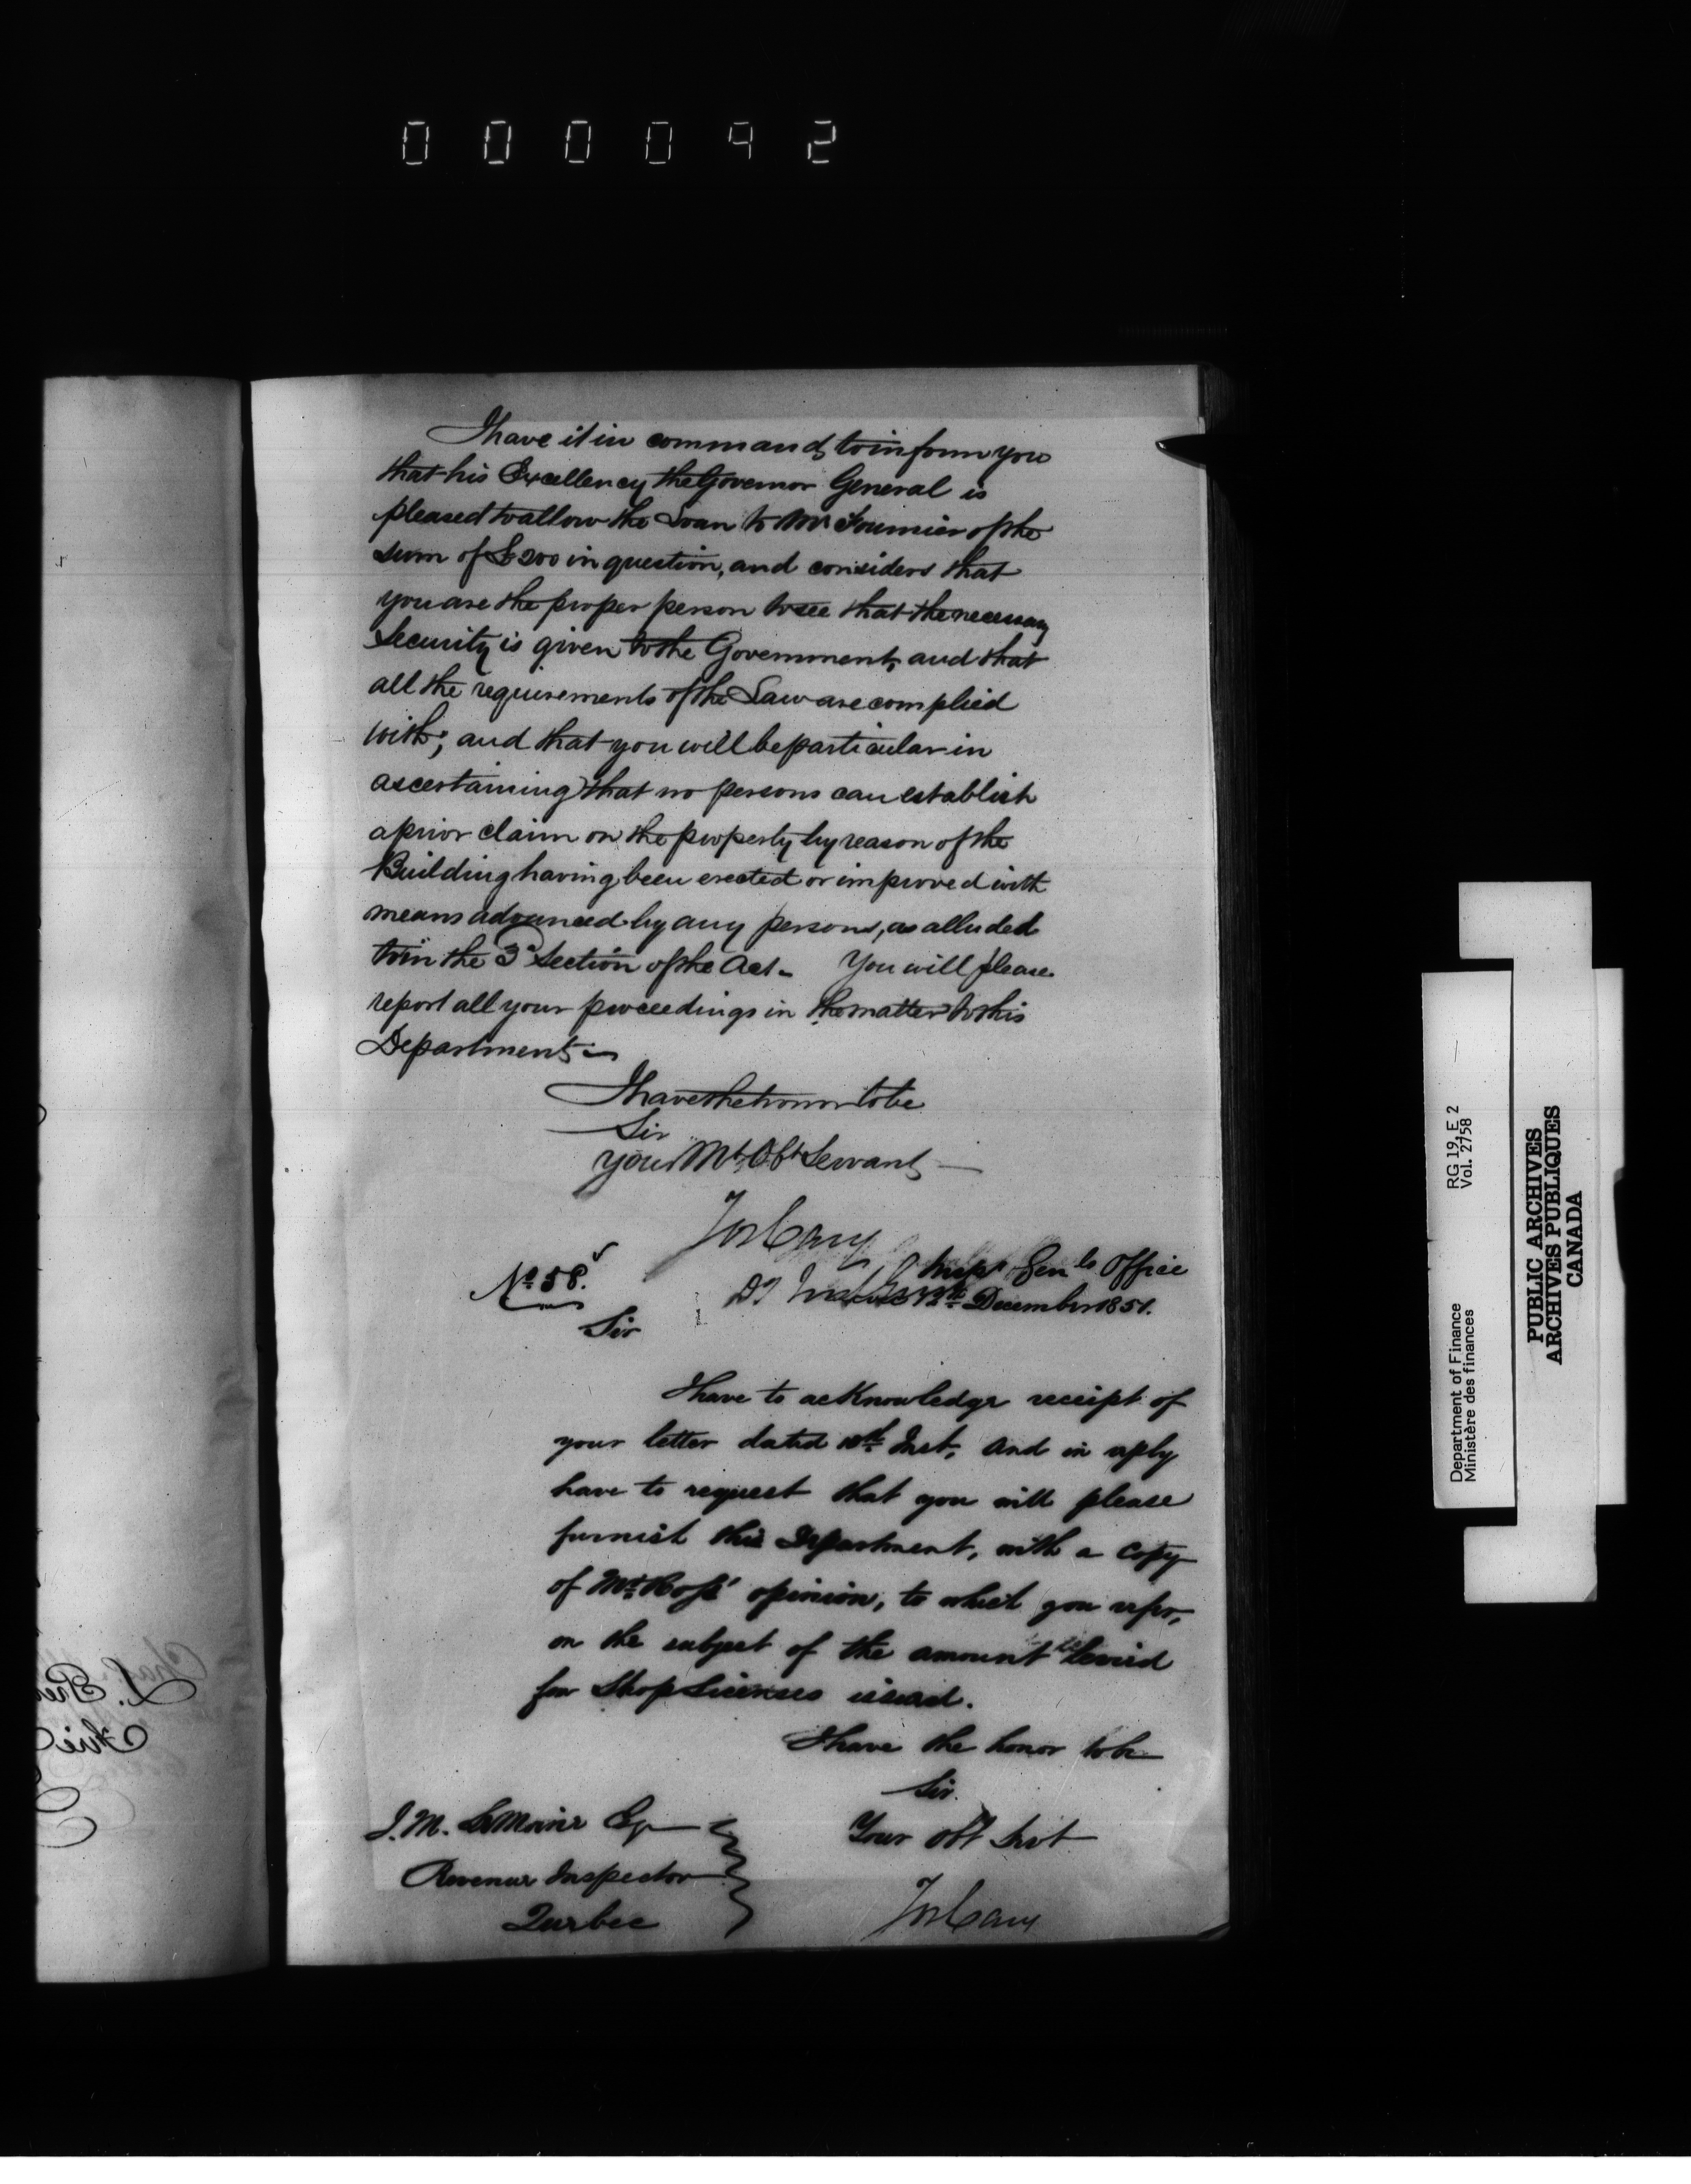 000092
I have it in command to inform you
that his Excellency the Governor General is
pleased to allow the Loan to Mr Fournier of the
sum of £200 in question, and considers that
you are the proper person to see that the necessary
Security is given to the Government, and that
all the requirements of the Law are complied
with; and that you will be particular in
ascertaining that no persons can establish
a prior claim on the property by reason of the
Building having been erected or improved with
means advanced by any persons, as alluded
to in the 3d Section of the Act - You will please
report all your proceedings in the matter to this
Department -
I have the honor to be
Sir
Your Mt Obt Servant
Jos Cary
No 58.
Inspr Genls Office
12th December 1851.
Sir
I have to acknowledge receipt of
your letter dated 10th Inst, and in reply
have to request that you will please
furnish this Department, with a copy
of Mr Ross' opinion, to which you refer,
on the subject of the amount to be levied
for Shop Licenses issued.
I have the honor to be
Sir.
Your obt Servt
Jos Cary
J. M. LeMoine Esqr
Revenue Inspector
Quebec
Department of Finance RG 19, E 2
Ministère des finances Vol. 2758
PUBLIC ARCHIVES
ARCHIVES PUBLIQUES
CANADA